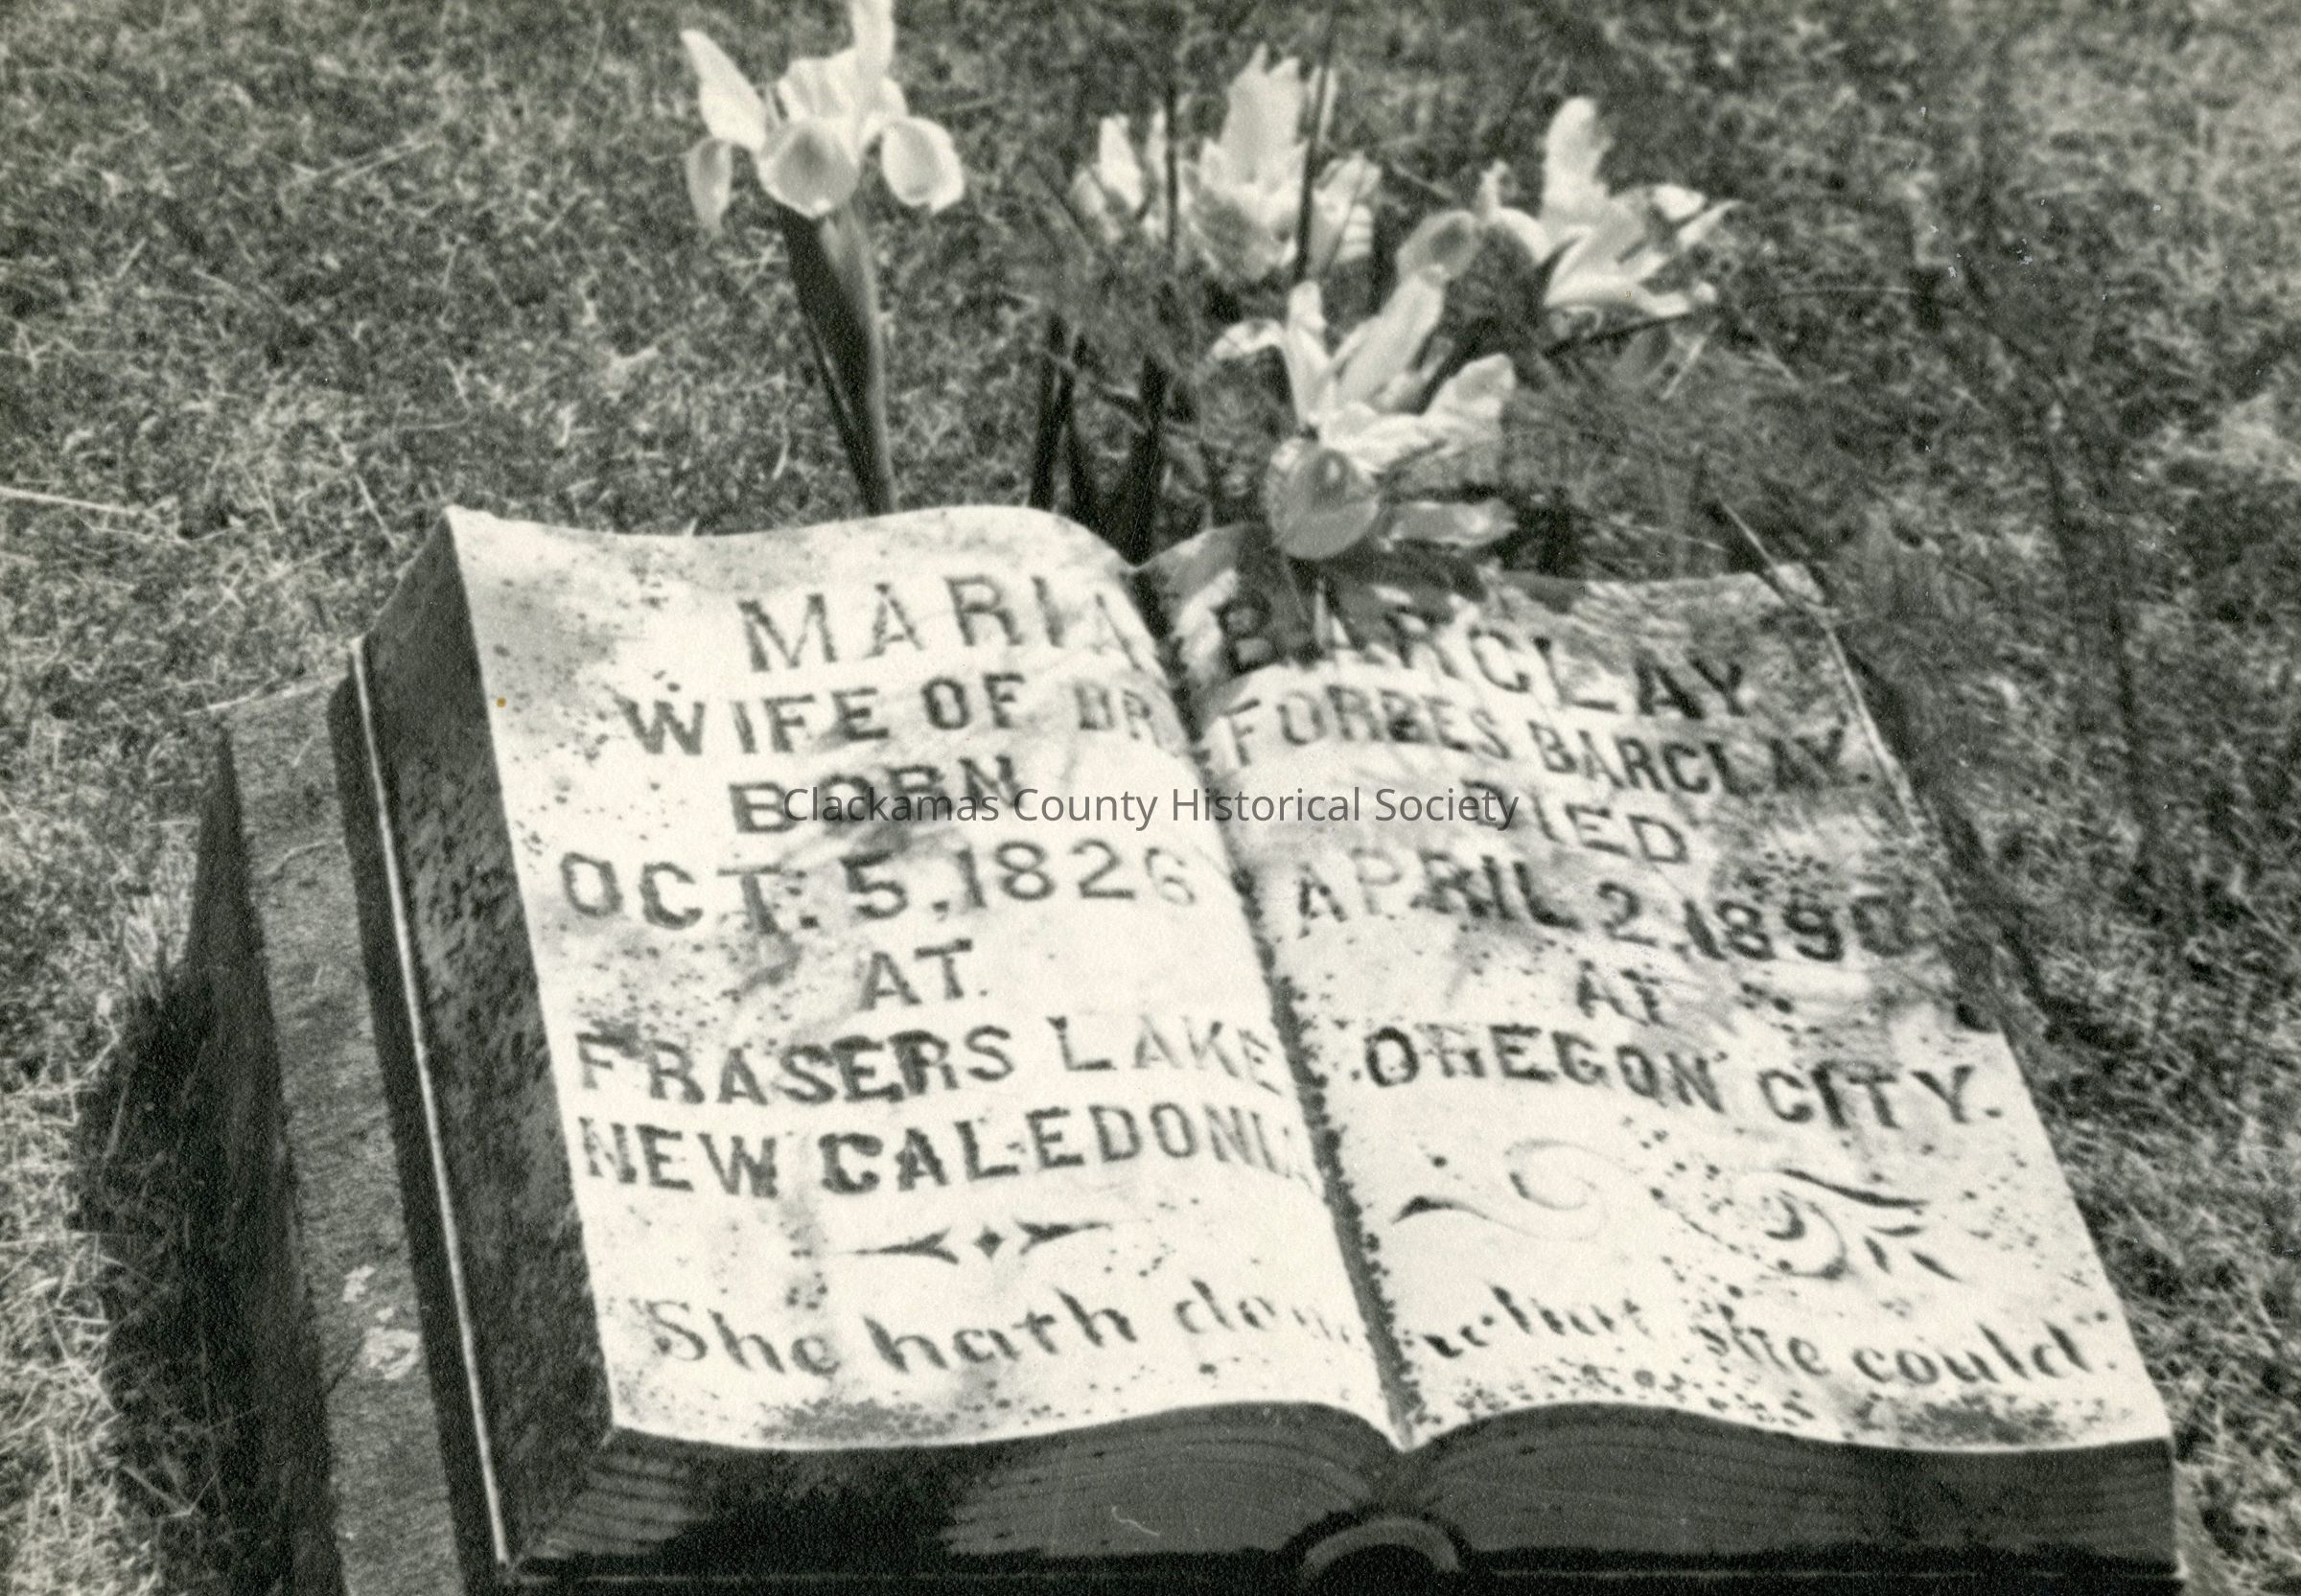 MARIA BARCLAY
WIFE OF DR FORBES BARCLAY.
BORN DIED
OCT. 5, 1826 APRIL 2, 1890
AT AT
FRASERS LAKE OREGON CITY.
NEW CALEDONIA
"She hath done what she could".
Clackamas County Historical Society